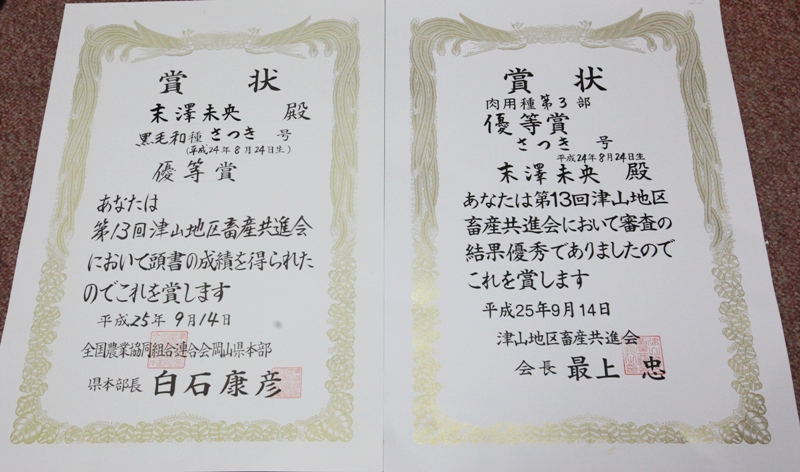 賞 状
末澤未央 殿
黒毛和種 さつき 号
(平成24年8月24日生)
優等賞
あなたは
第13回津山地区畜産共進会
において頭書の成績を得られた
のでこれを賞します
平成25年 9月14日
全国農業協同組合連合会岡山県本部
県本部長 白石康彦
賞 状
肉用種 第3部
優等賞
さつき 号
平成24年8月24日生
末澤未央 殿
あなたは第13回津山地区
畜産共進会において審査の
結果優秀でありましたので
これを賞します
平成25年9月14日
津山地区畜産共進会
会長 最上 忠